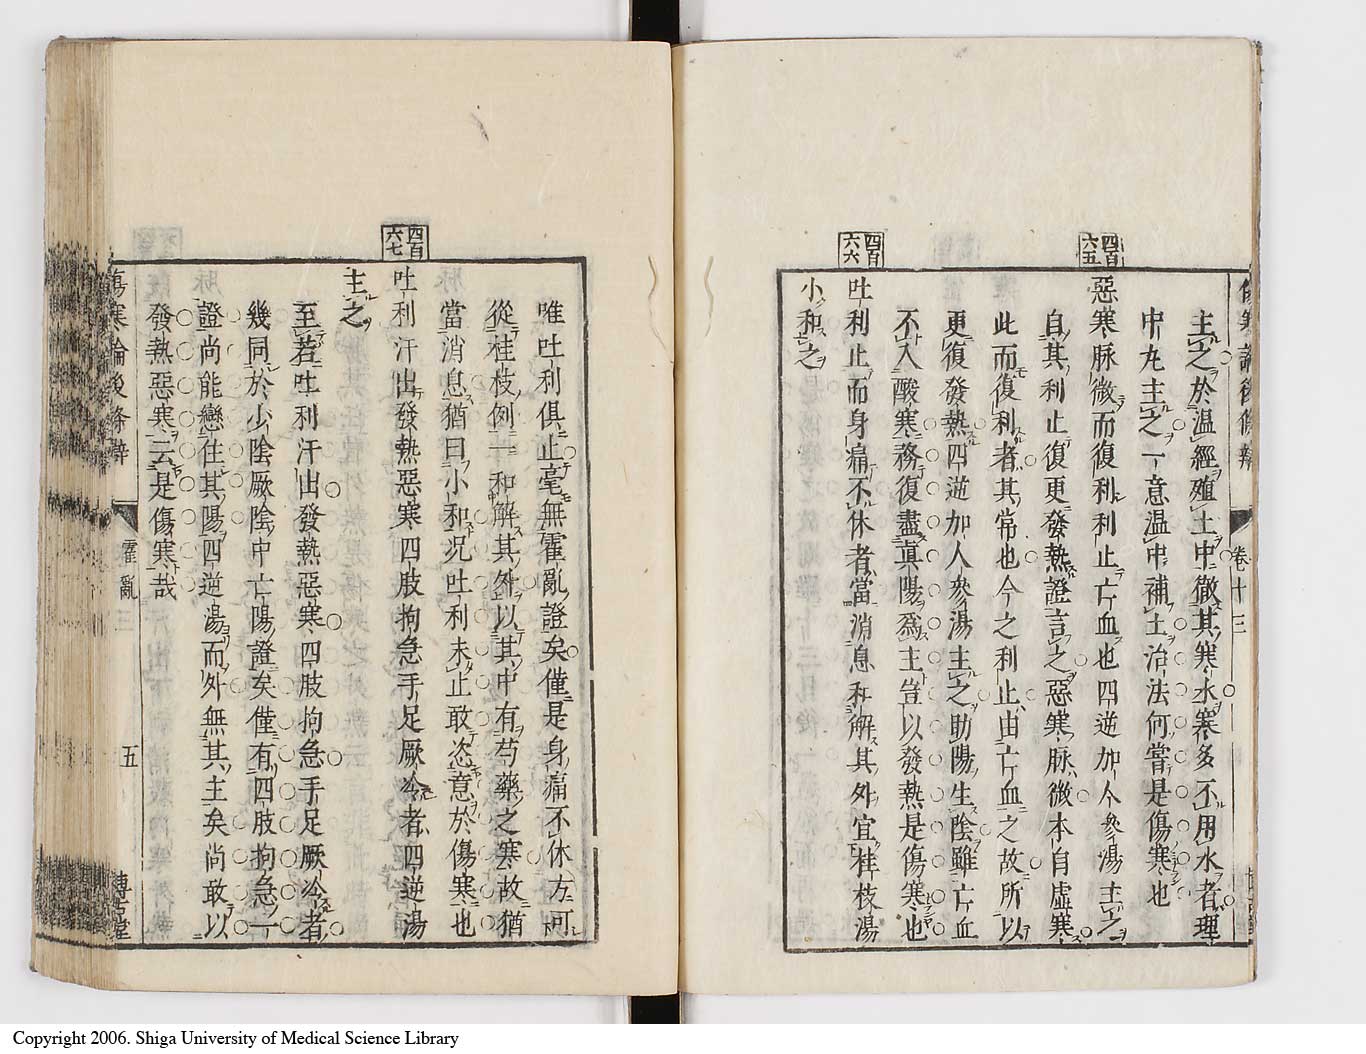 傷寒論後條辨 卷十三
主之於溫經殖土中徹其寒水寒多不用水者理
中丸主之一意溫中補土治法何嘗是傷寒也
四百六五
惡寒脉微而復利利止亡血也四逆加人參湯主之
自其利止復更發熱證言之惡寒脉微本自虛寒
此而復利者其常也今之利止由亡血之故所以
更復發熱四逆加人參湯主之助陽生陰雖亡血
不入酸寒務復盡眞陽爲主豈以發熱是傷寒也
四百六六
吐利止而身痛不休者當消息和解其外宜桂枝湯
小和之
唯吐利俱止毫無霍亂證矣僅是身痛不休方可
從桂枝例一和解其外以其中有芍藥之寒故猶
當消息猶曰小和况吐利未止敢恣意於傷寒也
四百六七
吐利汗出發熱惡寒四肢拘急手足厥冷者四逆湯
主之
至若吐利汗出發熱惡寒四肢拘急手足厥冷者
幾同於少陰厥陰中亡陽證矣僅有四肢拘急一
證尚能戀住其陽四逆湯而外無其主矣尚敢以
發熱惡寒云是傷寒哉
傷寒論後條辨 霍亂 五 博古堂
Copyright 2006. Shiga University of Medical Science Library